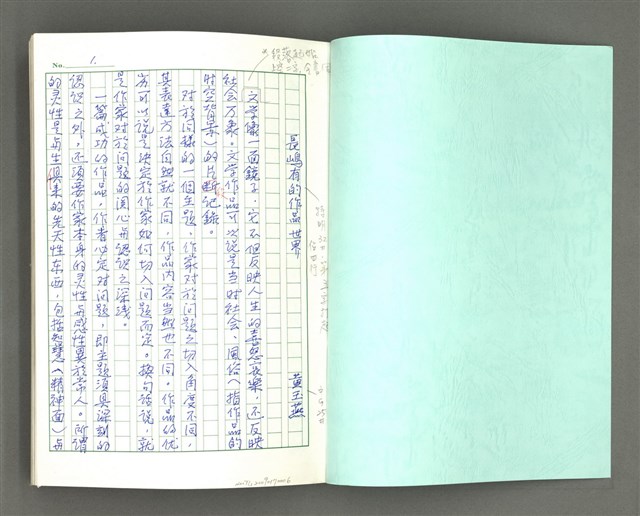 No. 1.
長嶋有的作品世界
黃玉燕
文学像一面鏡子，它不但反映人生的喜怒哀樂，还反映
社会万象。文学作品可以说是当时社会、風俗（指作品的
时空背景）的片断紀錄。
对於同樣的一個主題，作家对於问題之切入角度不同，
其表達方法自然就不同，作品内容当然也不同。作品的优
劣可以说是決定於作家如何切入问題而定。換句话说，就
是作家对於问題的関心与認识之深浅。
一篇成功的作品，作者必定对问題，即主題須具深刻的
認识之外，还須要作家本身的灵性与感性異於常人。所谓
的灵性是与生俱来的先天性东西，包括智慧（精神面）与